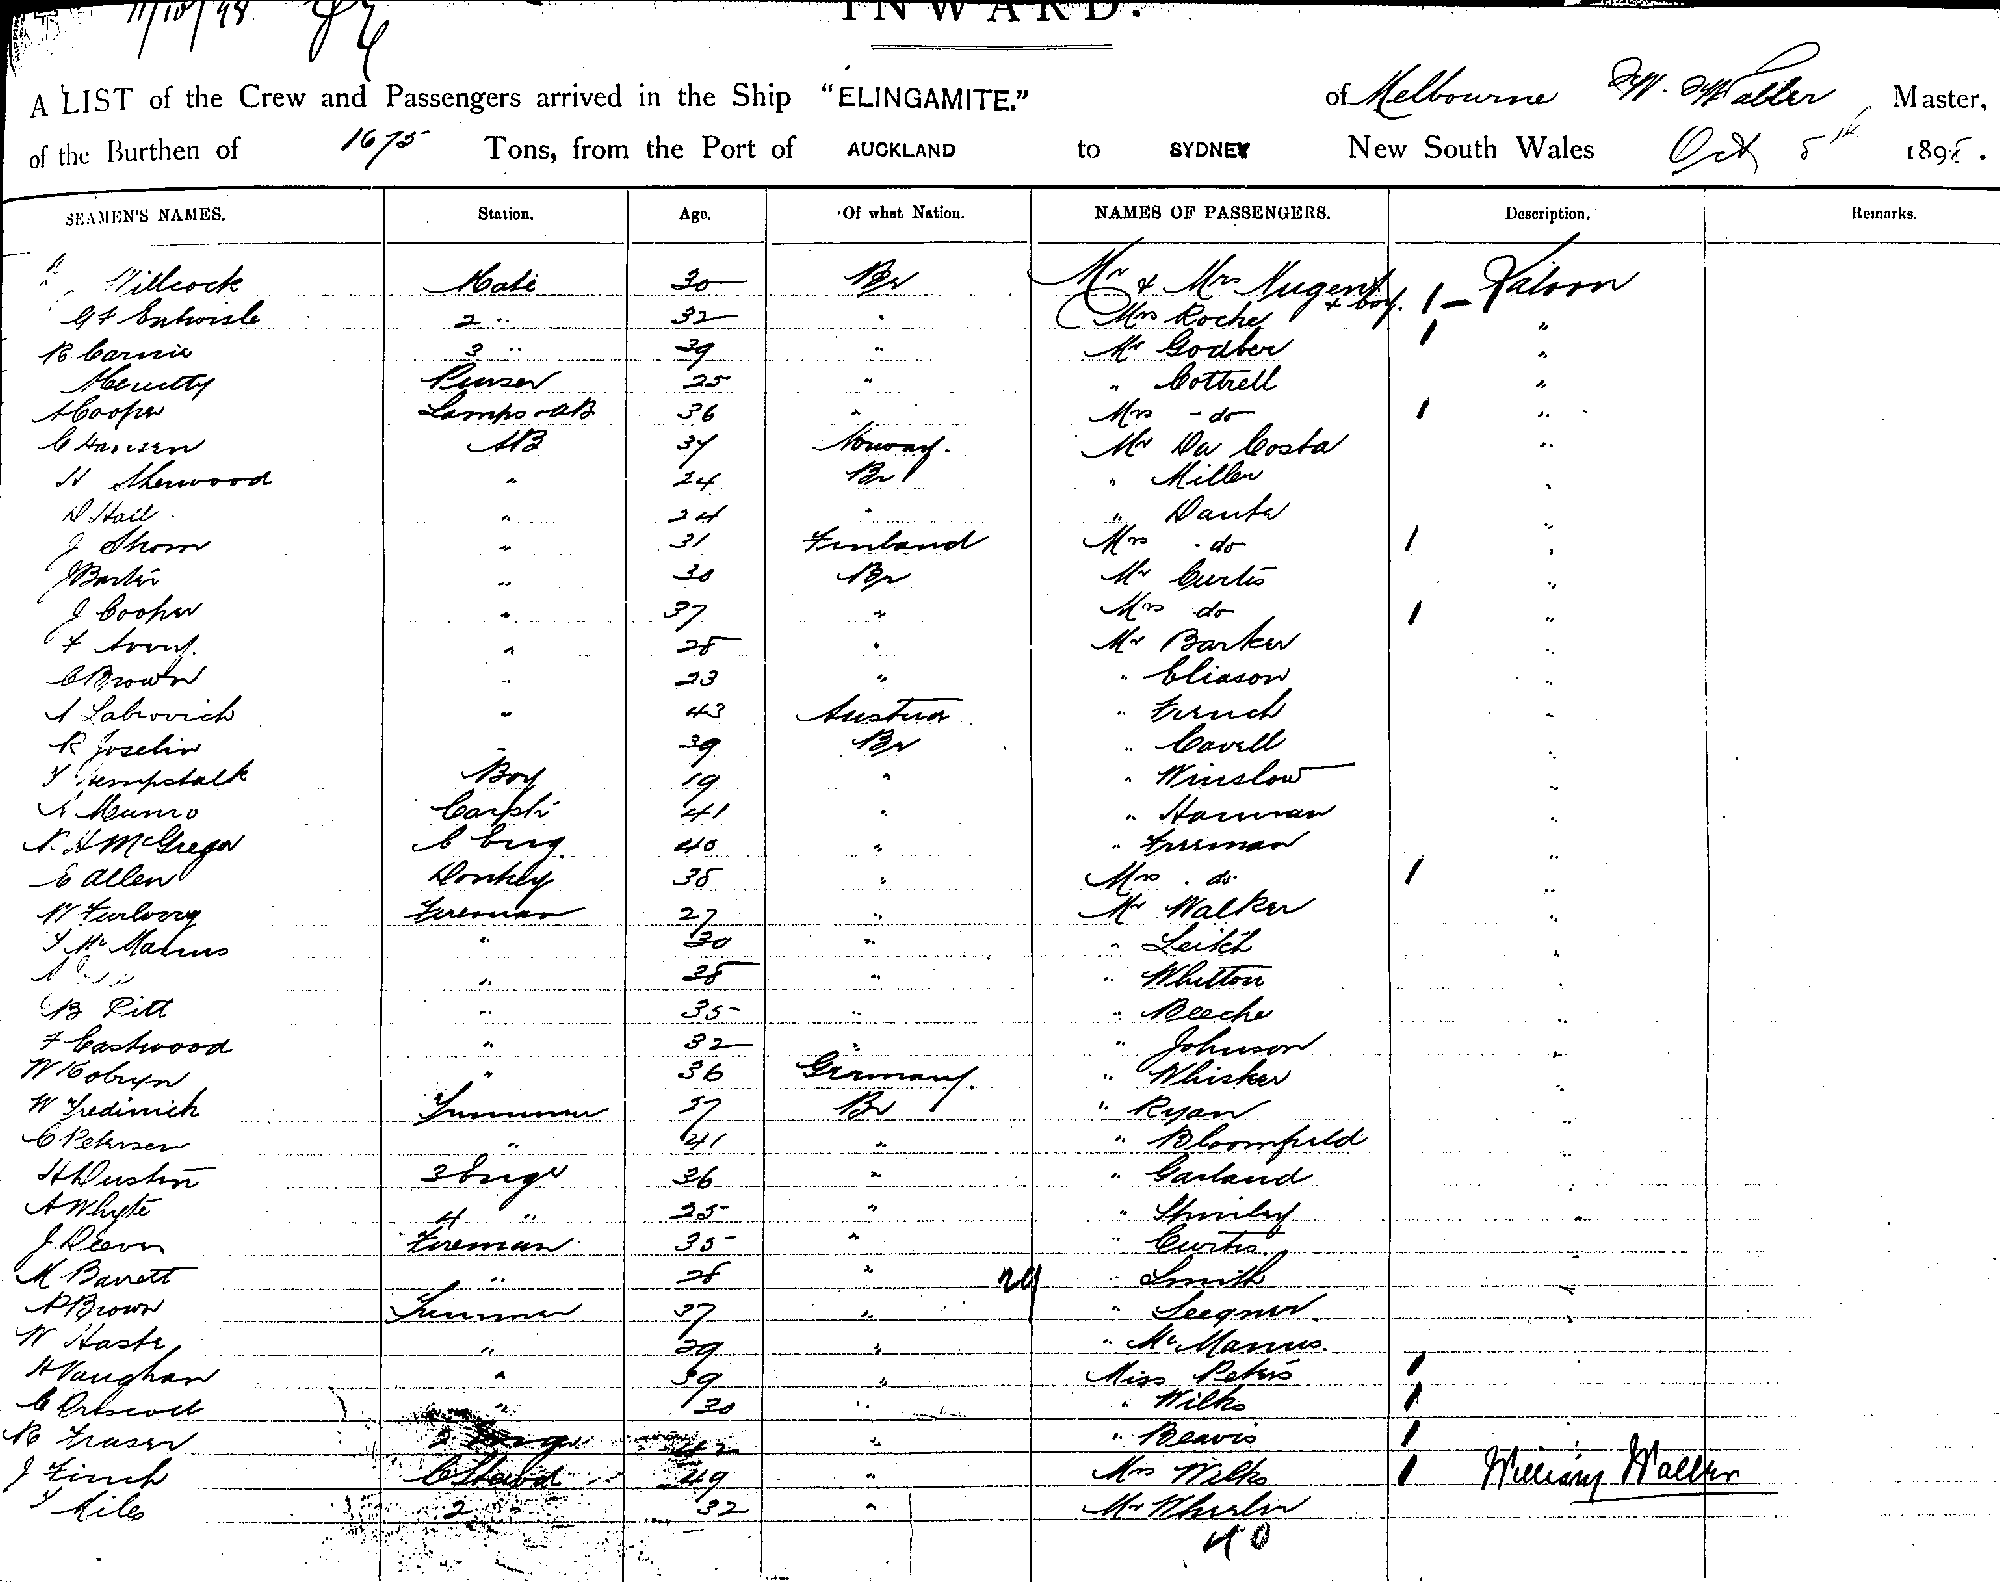 11/10/98
INWARD.
A LIST of the Crew and Passengers arrived in the Ship "ELINGAMITE." of Melbourne Master,
of the Burthen of 1675 Tons, from the Port of AUCKLAND to SYDNEY New South Wales Oct 5th 1898.
SEAMEN'S NAMES. Station. Age. Of what Nation. NAMES OF PASSENGERS. Description. Remarks.
Willcock Mate 30 Br Mr & Mrs Nugent & boy. 1 - Saloon
G F Entwisle 2 " 32 " Mrs Roche 1 "
R Carnie 3 " 39 " Mr Godber "
Purser 25 " " Cottrell "
A Cooper Lamps AB 36 " Mrs - do 1 "
C Hansen AB 37 Norway. Mr Da Costa "
H Sherwood " 24 Br " Miller "
D Hall " 24 " " Dante "
J Shorn " 31 Finland Mrs - do 1 "
J Barter " 30 Br Mr Curtis "
J Cooper " 37 " Mrs do 1 "
F Avery. " 28 " Mr Barker "
C Brown " 23 " " Eliason "
A Labrovich " 43 Austria " French "
R Joselin " 39 Br " Cavell "
Boy 19 " " Winslow "
A Munro Carptr 41 " " Hannan "
N. H McGregor C Eng. 40 " " Freeman "
E Allen Donkey 38 " Mrs - do 1 "
W Furlong Fireman 27 " Mr Walker "
T McManus " 30 " " Leitch "
A " 38 " " Whitton "
B Pitt " 35 " " Beeche "
F Eastwood " 32 " " Johnson "
W " 36 Germany. " Whisker "
W Tredinnick Trimmer 37 Br " Ryan "
C Petersen " 41 " " Bloomfield "
H Dustin 3 Engr 36 " " Garland "
A Whyte 4 " 25 " " "
J Fireman 35 " " Curtis "
M Barrett " 28 " 29 " Smith "
A Brown Trimmer 37 " " Seegner. "
W Haste " 29 " " McManus.
H Vaughan " 39 " Miss Peters 1
C Driscoll " 30 " " Wilks 1
R Fraser 2 Engr 42 " " Beavis 1 "
J Finch C Steward 49 " Mrs Wilks 1 William Waller
T Miles 2 " 32 " Mr Wheeler
40